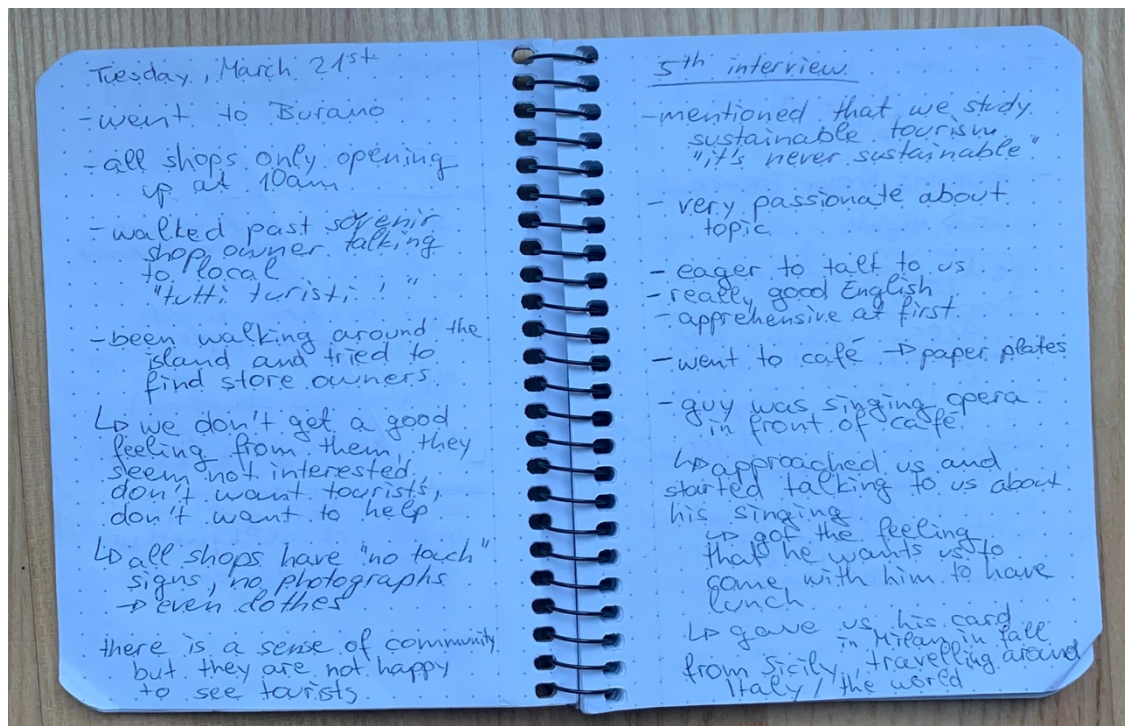 Tuesday, March 21st
- went to Burano
- all shops only opening
up at 10am
- walked past sovenir
shop owner talking
to local
"tutti turisti!"
- been walking around the
island and tried to
find store owners
↳ we don't get a good
feeling from them, they
seem not interested,
don't want tourists,
don't want to help
↳ all shops have "no touch"
signs, no photographs
→ even clothes
there is a sense of community
but they are not happy
to see tourists
5th interview
- mentioned that we study
sustainable tourism
"it's never sustainable"
- very passionate about
topic
- eager to talk to us
- really good English
- apprehensive at first
- went to café → paper plates
- guy was singing opera
in front of café
↳ approached us and
started talking to us about
his singing
↳ got the feeling
that he wants us to
come with him to have
lunch
↳ gave us his card
in Milan in fall
from Sicily, travelling around
Italy / the world